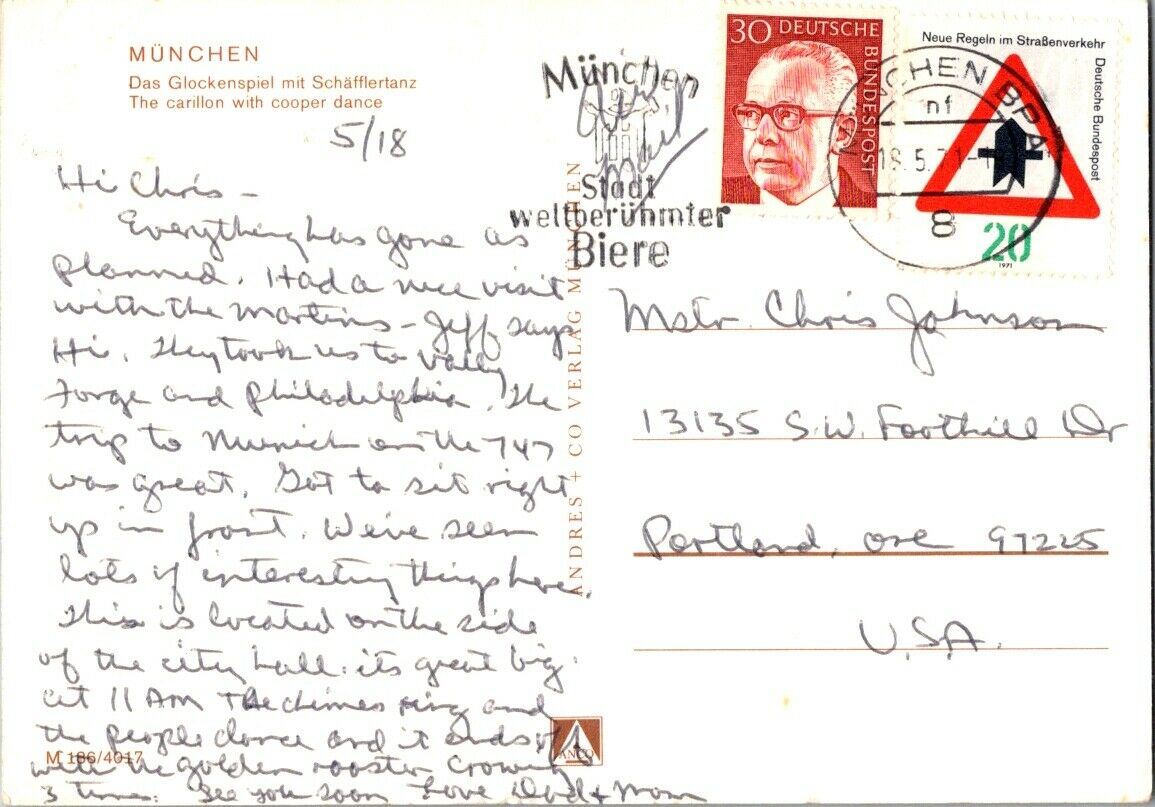 MÜNCHEN
Das Glockenspiel mit Schäfflertanz
The carillon with cooper dance
5/18
Hi Chris -
Everything has gone as
planned. Had a nice visit
with the Martins - Jeff says
Hi. They took us to Valley
Forge and Philadelphia. The
trip to Munich on the 747
was great. Got to sit right
up in front. We've seen
lots of interesting things here.
This is located on the side
of the city hall. its great big.
at 11 AM the chimes ring and
the people dance and it ends up
with the golden rooster crowing
3 times. See you soon Love Dad + Mom
M 186/4017
ANCO
ANDRES + CO VERLAG MÜNCHEN
München
Stadt
weltberühmter
Biere
Air
Mail
30 DEUTSCHE
BUNDESPOST
Neue Regeln im Straßenverkehr
Deutsche Bundespost
20
1971
MÜNCHEN BPA
nf
18.5.71-1
8
Mstr. Chris Johnson
13135 S.W. Foothill Dr
Portland, Ore 97225
U.S.A.